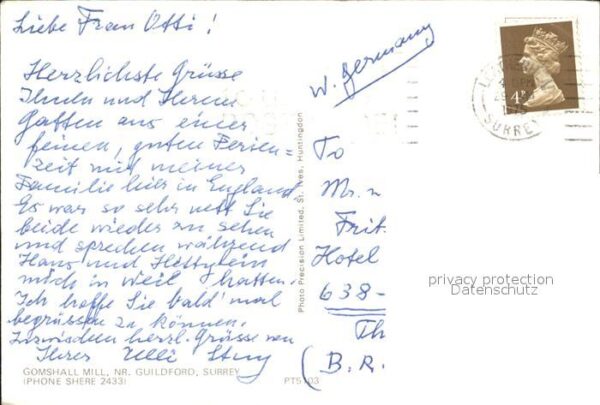 Liebe Frau Otti!
Herzlichste Grüsse
Ihnen und Ihrem
Gatten aus einer
feinen, guten Ferien=
zeit mit meiner
Familie hier in England.
Es war so sehr nett Sie
beide wieder zu sehen
und sprechen während
Hans und Hetty
mich in Weil hatten.
Ich hoffe Sie bald 'mal
begrüssen zu können.
Inzwischen herzl. Grüsse von
Ihrer
GOMSHALL MILL, NR. GUILDFORD, SURREY
(PHONE SHERE 2433)
PT5103
Photo Precision Limited, St. Ives, Huntingdon
W. Germany
4P
1975
SURREY
To
Mr. n
Frit
Hotel
638-
Th
(B.R.
privacy protection
Datenschutz